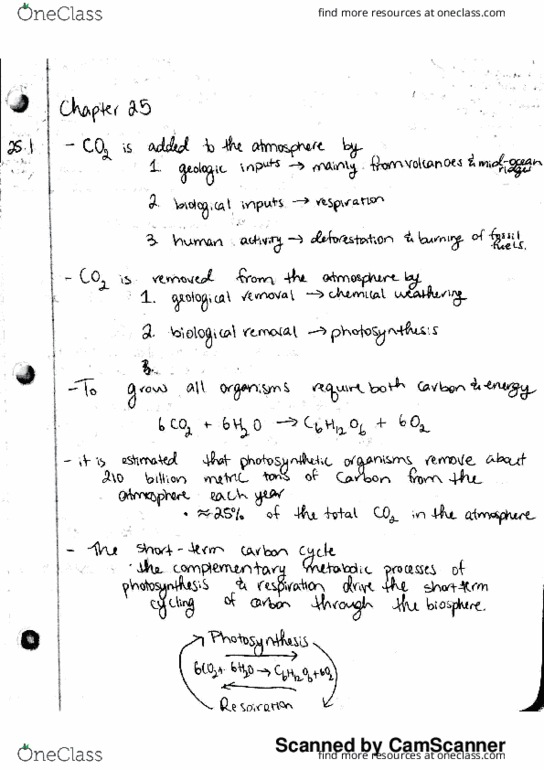 OneClass
find more resources at oneclass.com
Chapter 25
25.1
- CO2 is added to the atmosphere by
1. geologic inputs → mainly from volcanoes & mid-ocean ridges
2. biological inputs → respiration
3. human activity → deforestation & burning of fossil fuels.
- CO2 is removed from the atmosphere by
1. geological removal → chemical weathering
2. biological removal → photosynthesis
3.
- To grow all organisms require both carbon & energy
6CO2 + 6H2O → C6H12O6 + 6O2
- it is estimated that photosynthetic organisms remove about
210 billion metric tons of carbon from the
atmosphere each year
• ≈25% of the total CO2 in the atmosphere
- The short-term carbon cycle
• the complementary metabolic processes of
photosynthesis & respiration drive the short-term
cycling of carbon through the biosphere.
Photosynthesis
6CO2 + 6H2O → C6H12O6 + 6O2
Respiration
Scanned by CamScanner
OneClass
find more resources at oneclass.com